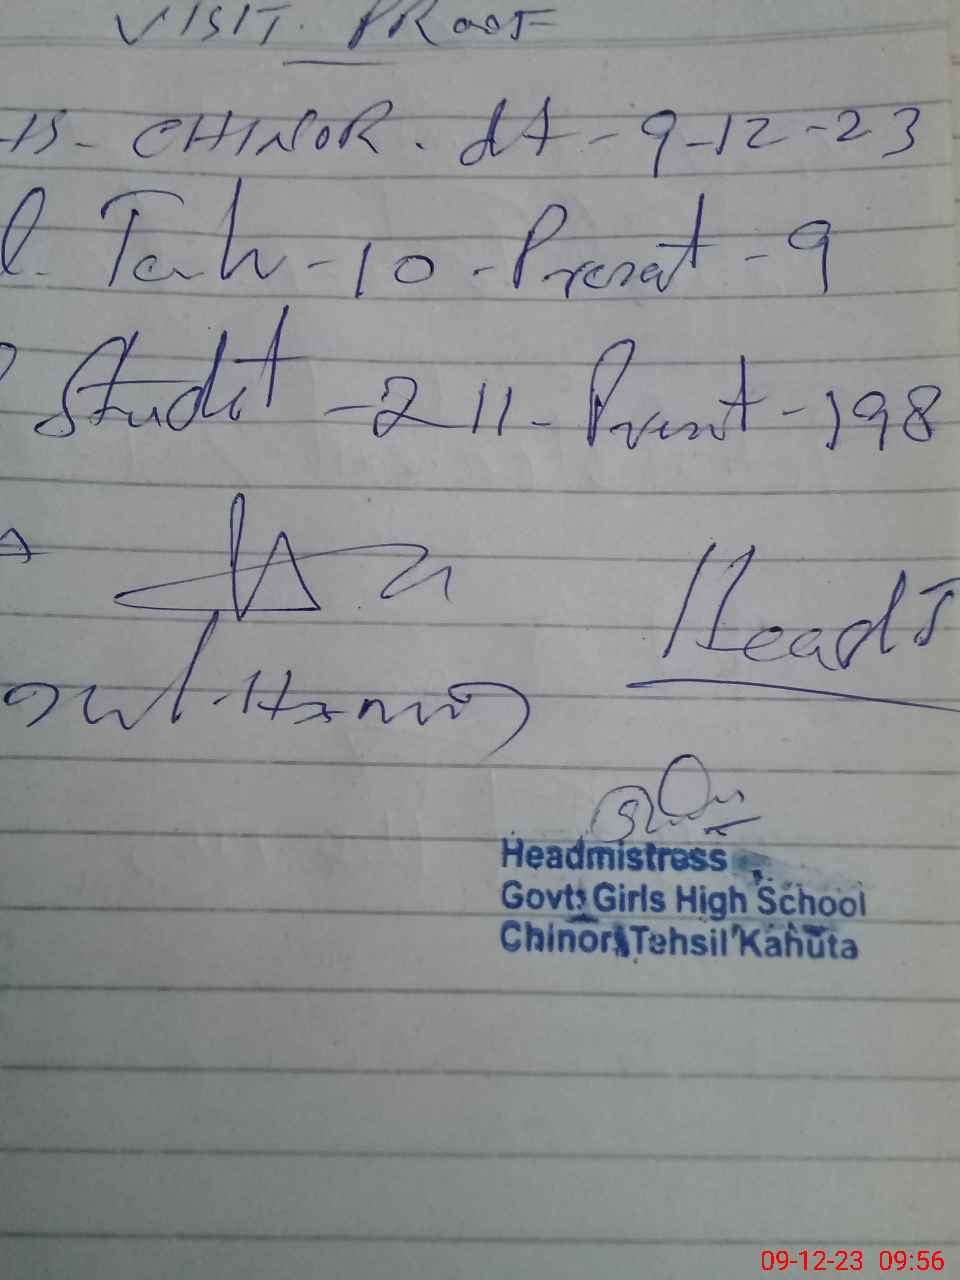 VISIT. PROOF
HS - CHINOR. dt - 9-12-23
Teach - 10 - Present - 9
Student - 211 - Present - 198
Head
Headmistress
Govt: Girls High School
Chinor Tehsil Kahuta
09-12-23 09:56